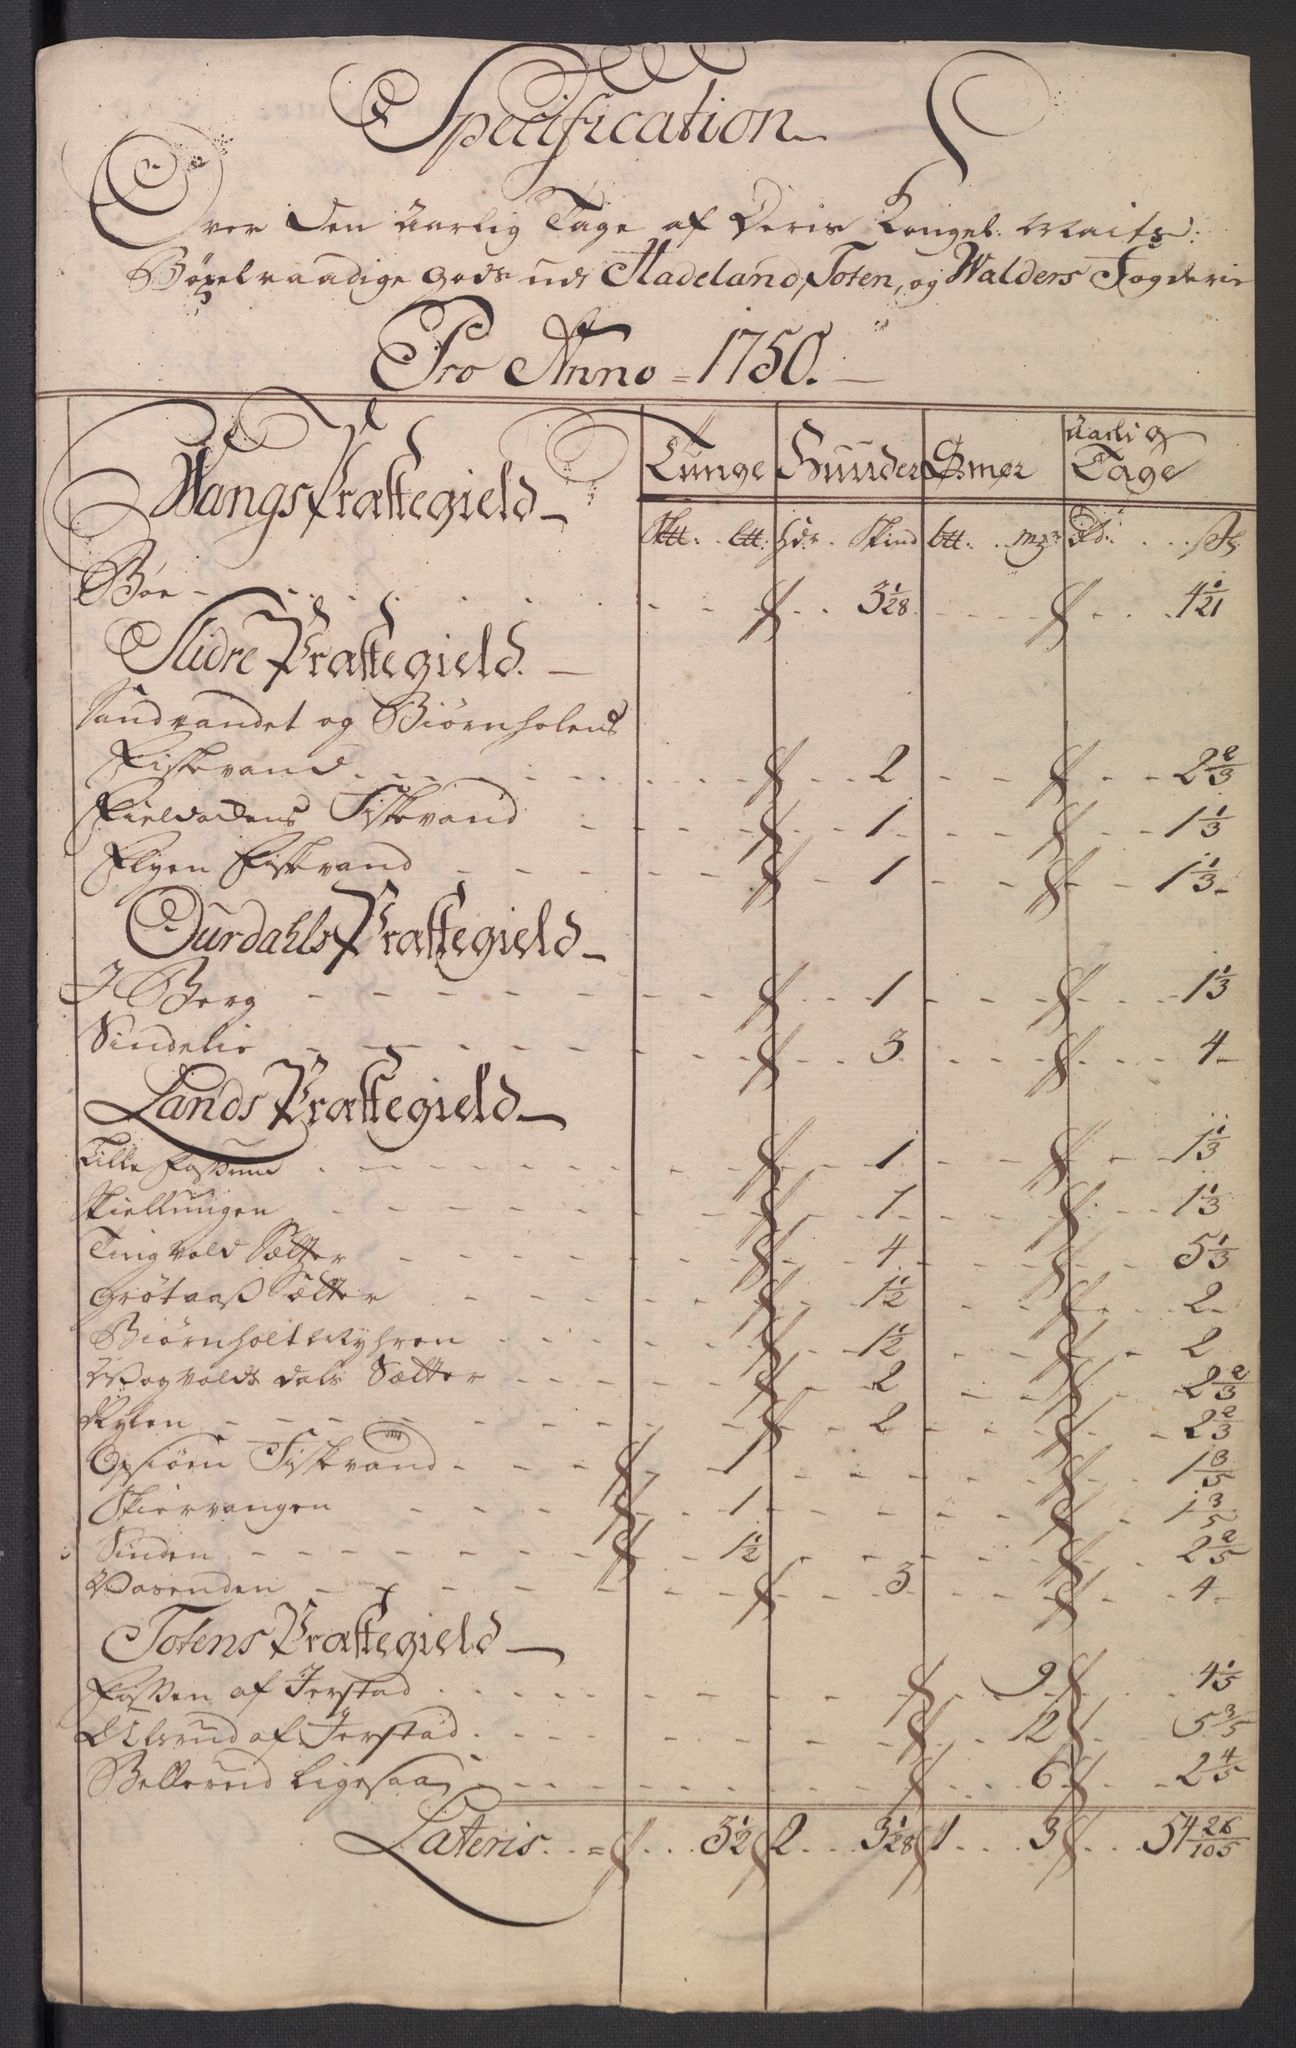 Specification
Over den Aarlig Tage af Deris Kongel: Maits:
Böxelraadige Gods udi Hadeland, Toten, og Walders Fogderie
Pro Anno = 1750.
Wangs Præstegield Tunge Huuder Smør Aarlig Tage
Sk℔. . L℔: hdr. Skind b℔. . mgr Rd. . . . sh
Bøe 3 1/28 4 1/21
Slidre Præstegield.
Sandvandet og Biørnholens
Fiskevand 2 2 2/3
Fieldadens Fiskevand 1 1 1/3
Flyen Fiskevand 1 1 1/3
Ourdahls Præstegield
J Berg 1 1 1/3
Sindelie 3 4
Lands Præstegield
Lille Fossum 1 1 1/3
Skiellungen 1 1 1/3
Tingvold Sætter 4 5 1/3
Grötaaß Sætter 1 1/2 2
Biørnholt Myhren 1 1/2 2
dals Sætter 2 2 2/3
Rylen 2 2 2/3
Opsiøen Fiskevand 1 1 3/5
Skiervangen 1 1 3/5
Sinden 1 1/2 2 2/5
Vasenden 3 4
Totens Præstegield
Fossen af Jerstad 9 4 1/5
Ulsrud af Jerstad 12 5 3/5
Bellerud ligesaa 6 2 4/5
Lateris = 3 1/2 2 3 1/28 1 3 54 26/105